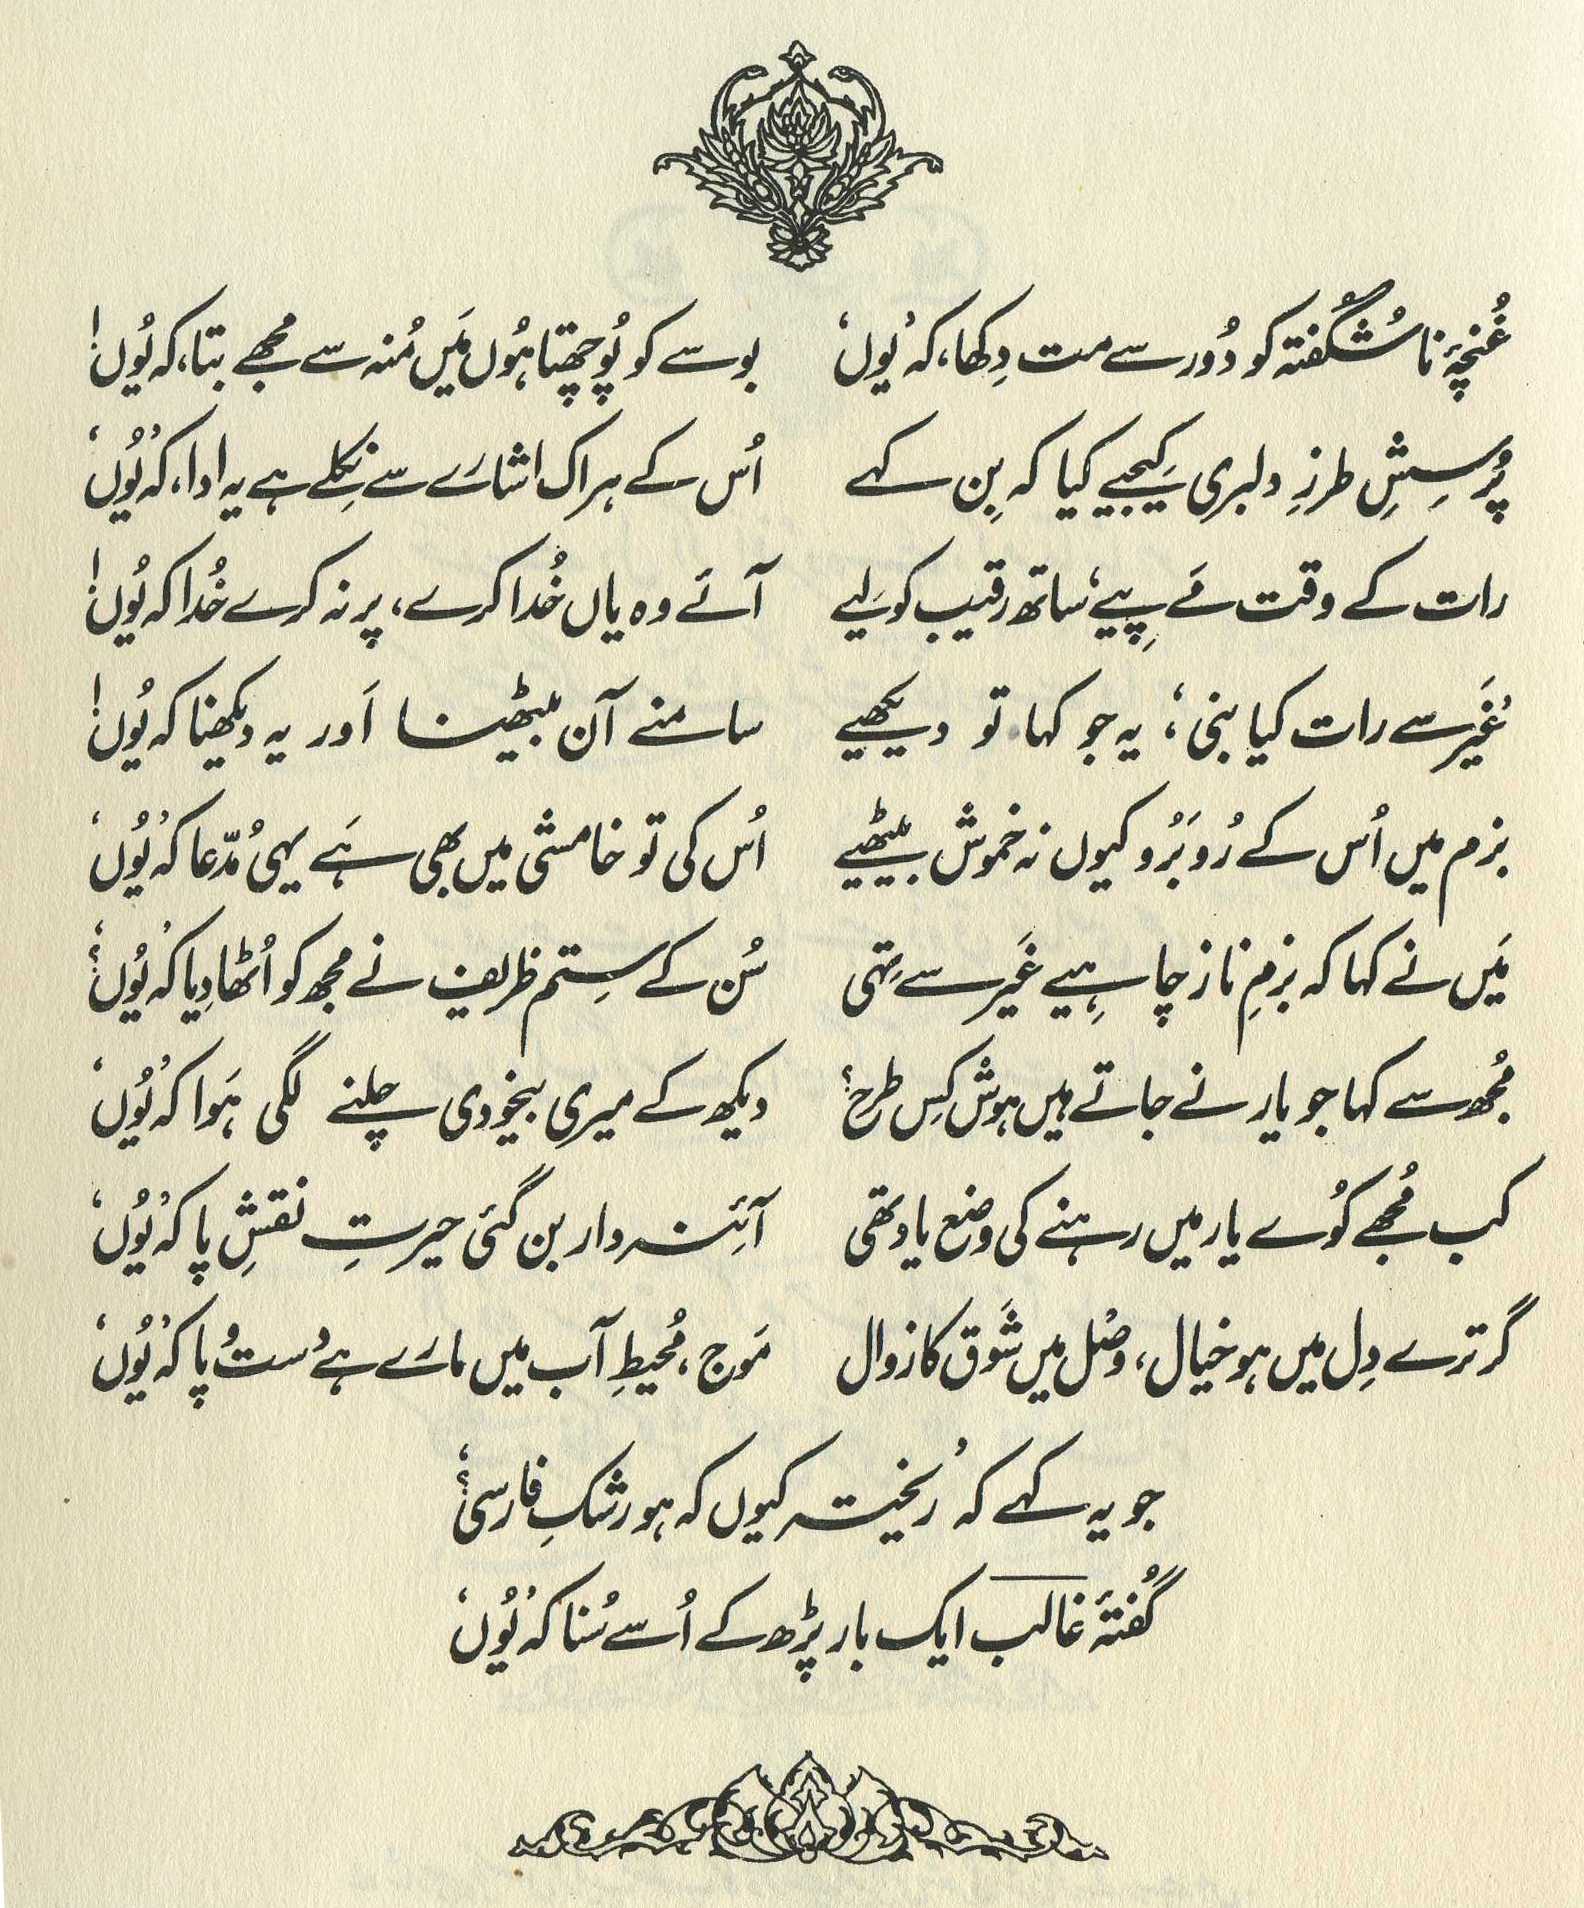 غُنچۂ ناشگُفتہ کو دُور سے مت دِکھا، کہ ’یُوں‘ بوسے کو پُوچھتا ہُوں مَیں مُنہ سے مجھے بتا، کہ یُوں!
پُرسِشِ طرزِ دلبری کیجیے کیا کہ بِن کہے اُس کے ہر اک اشارے سے نِکلے ہے یہ ادا، کہ ’یُوں‘
رات کے وقت مَے پیے، ساتھ رقیب کو لیے آئے وہ یاں خُدا کرے، پر نہ کرے خُدا کہ یُوں!
’غَیر سے رات کیا بنی‘، یہ جو کہا تو دیکھیے سامنے آن بیٹھنا اَور یہ دیکھنا کہ یُوں!
بزم میں اُس کے رُوبَرُو کیوں نہ خموش بیٹھیے اُس کی تو خامشی میں بھی ہَے یہی مُدّعا کہ ’یُوں‘
مَیں نے کہا کہ بزمِ ناز چاہِیے غَیر سے تِہی سُن کے سِتم ظریف نے مجھ کو اُٹھا دِیا کہ ’یُوں؟‘
مُجھ سے کہا جو یار نے جاتے ہیں ہوش کِس طرح؟ دیکھ کے میری بیخودی چلنے لگی ہَوا کہ ’یُوں‘
کب مُجھے کُوے یار میں رہنے کی وضع یاد تھی آئنہ دار بن گئی حیرتِ نقشِ پا کہ ’یُوں‘
گر ترے دِل میں ہو خیال، وصْل میں شَوق کا زوال مَوج، مُحیطِ آب میں مارے ہے دست و پا کہ ’یُوں‘
جو یہ کہے کہ ’ریختہ کیوں کہ ہو رشکِ فارسی؟‘
گُفتۂ غالب ایک بار پڑھ کے اُسے سُنا کہ ’یُوں‘